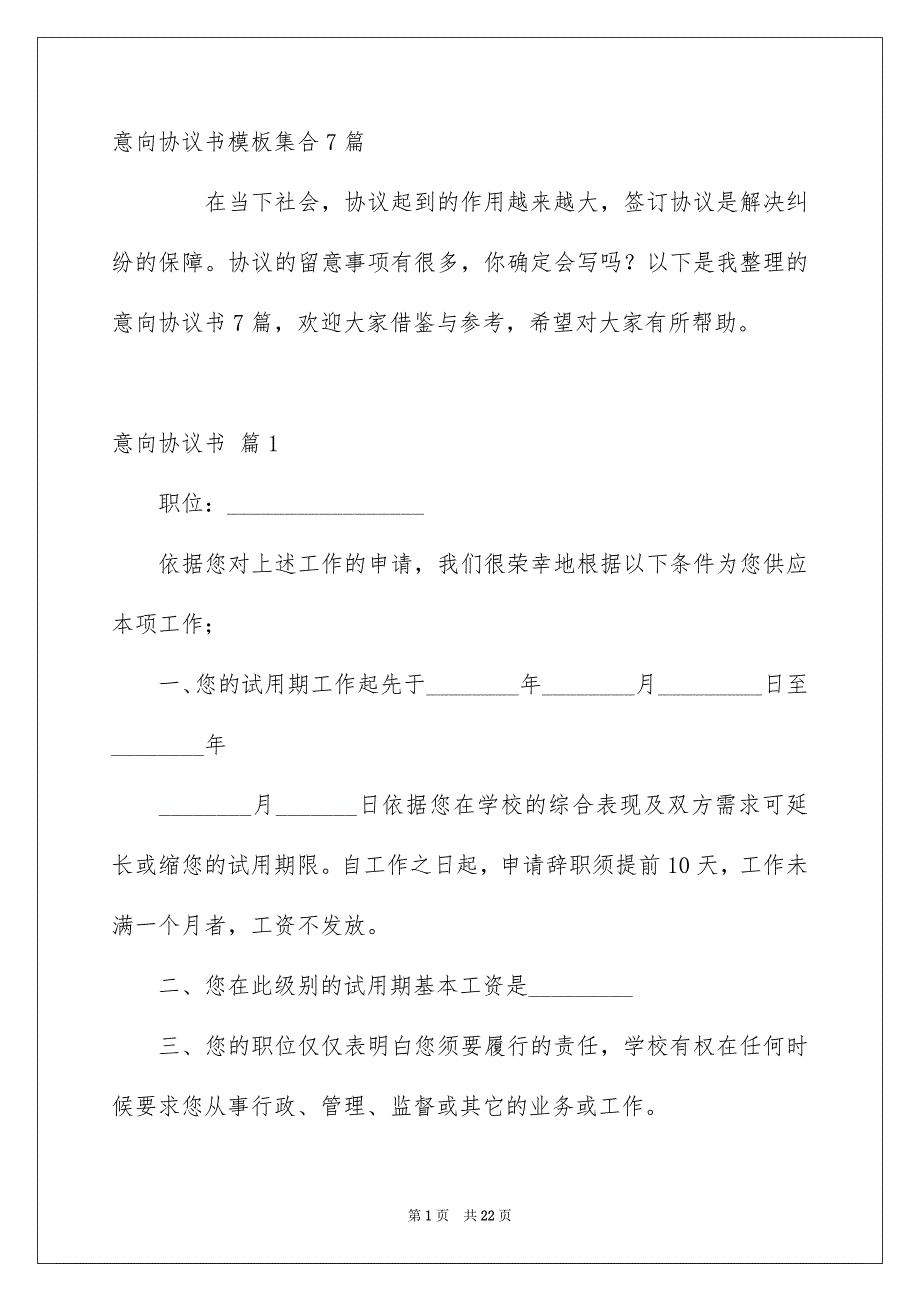 意向协议书模板集合7篇
在当下社会，协议起到的作用越来越大，签订协议是解决纠
纷的保障。协议的留意事项有很多，你确定会写吗？以下是我整理的
意向协议书7篇，欢迎大家借鉴与参考，希望对大家有所帮助。
意向协议书 篇1
职位：_________________
依据您对上述工作的申请，我们很荣幸地根据以下条件为您供应
本项工作；
一、您的试用期工作起先于________年________月_________日至
________年
________月_______日依据您在学校的综合表现及双方需求可延
长或缩您的试用期限。自工作之日起，申请辞职须提前10天，工作未
满一个月者，工资不发放。
二、您在此级别的试用期基本工资是_________
三、您的职位仅仅表明白您须要履行的责任，学校有权在任何时
候要求您从事行政、管理、监督或其它的业务或工作。
第1页 共22页